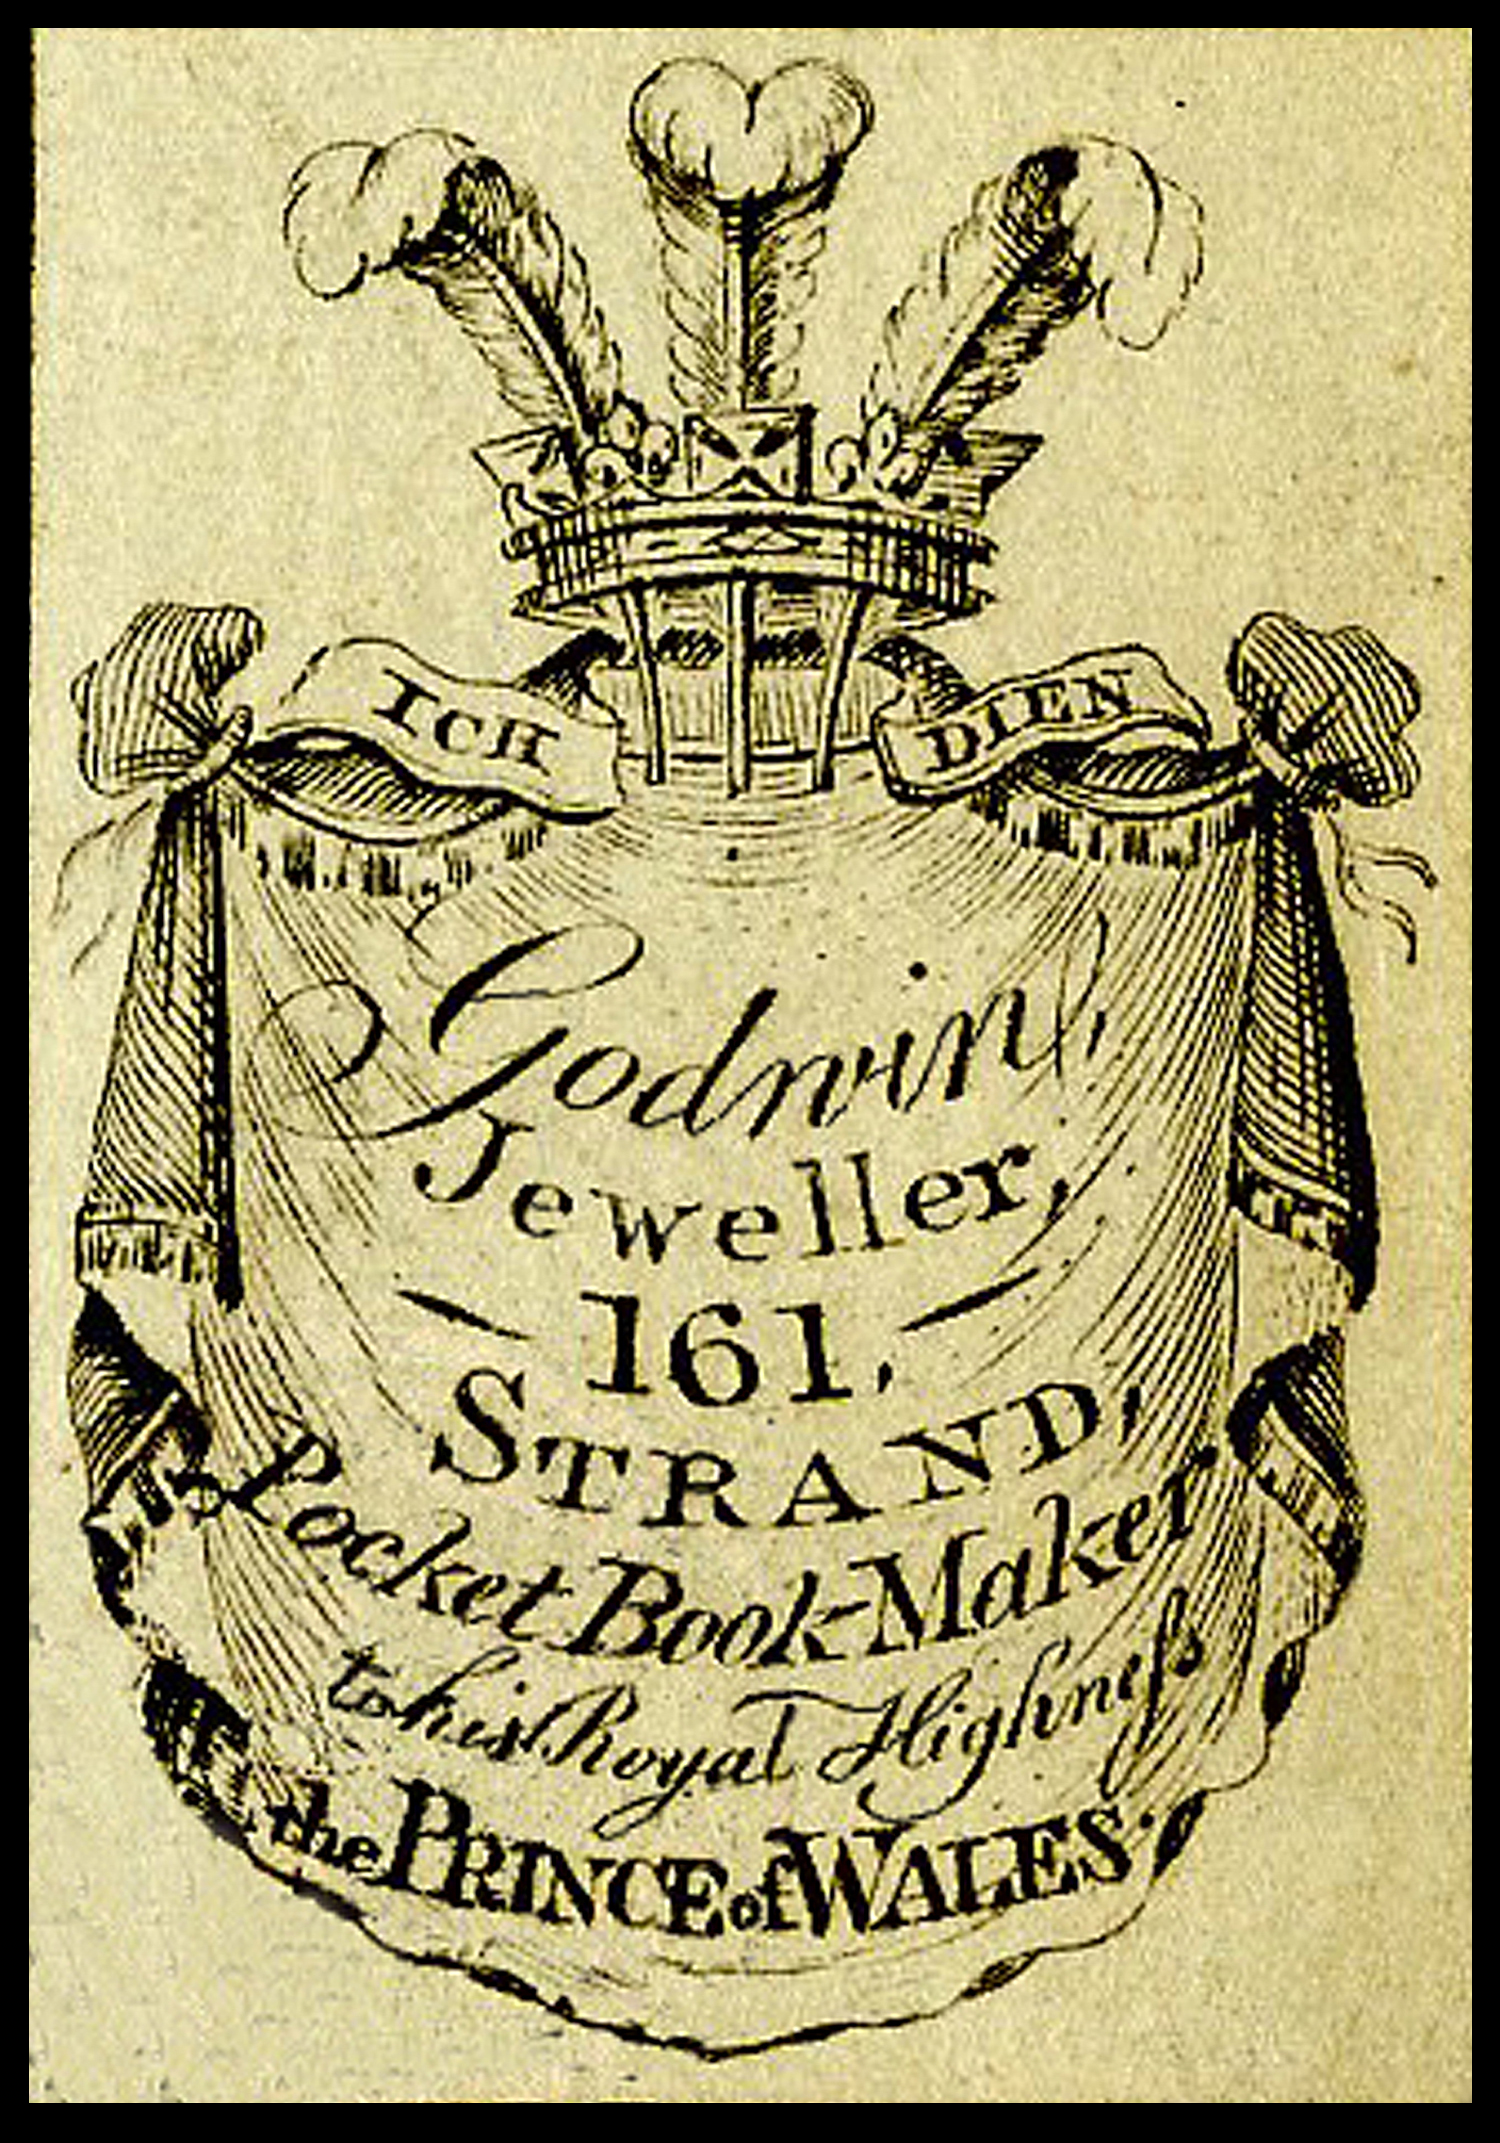 ICH DIEN
Godwin,
Jeweller,
161,
STRAND,
Pocket Book-Maker
to his Royal Highneſs
the PRINCE of WALES.